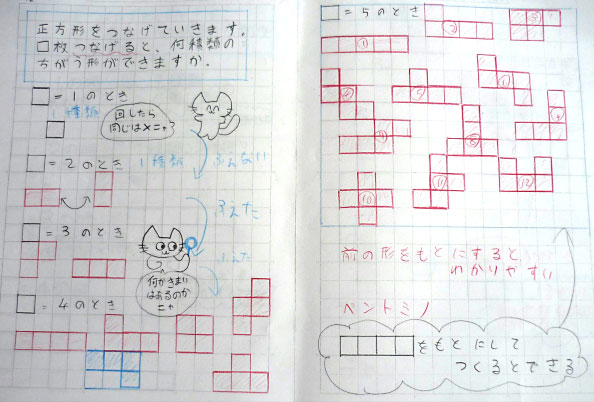 正方形をつなげていきます。
□枚つなげると、何種類の
ちがう形ができますか。
□=1のとき
種類
回したら
同じは×ニャ?
□=2のとき 1種類
ふえない
ふえた
□=3のとき
ふえた
何かきまり
はあるのか
ニャ
□=4のとき
□=5のとき
①
②
⑫
⑩
前の形をもとにすると、
わかりやすい
ペントミノ
をもとにして
つくるとできる